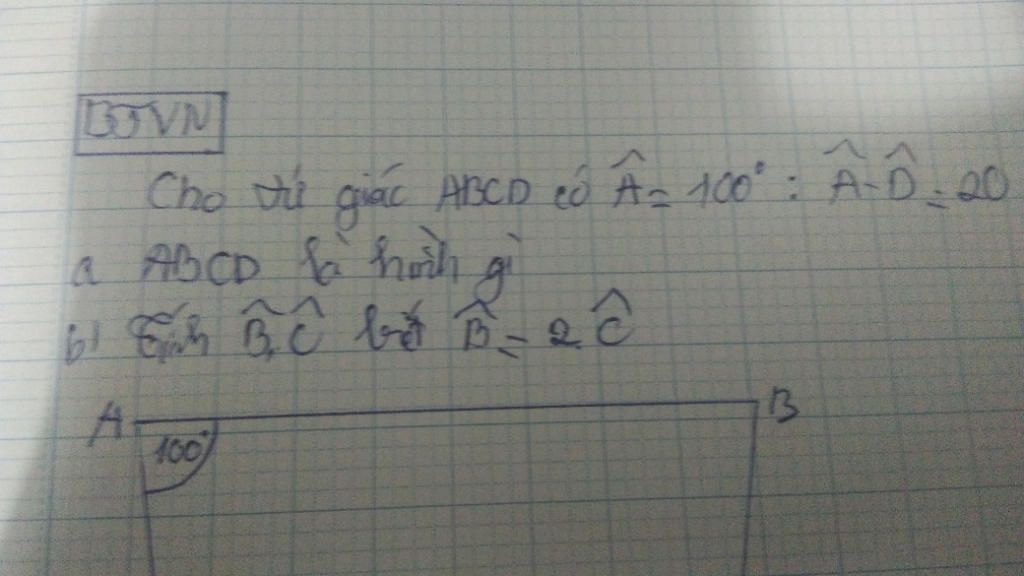 BTVN
Cho tứ giác ABCD có Â = 100° : Â - D̂ = 20
a ABCD là hình gì
b) Tính B̂, Ĉ biết B̂ = 2 Ĉ
A B
100°